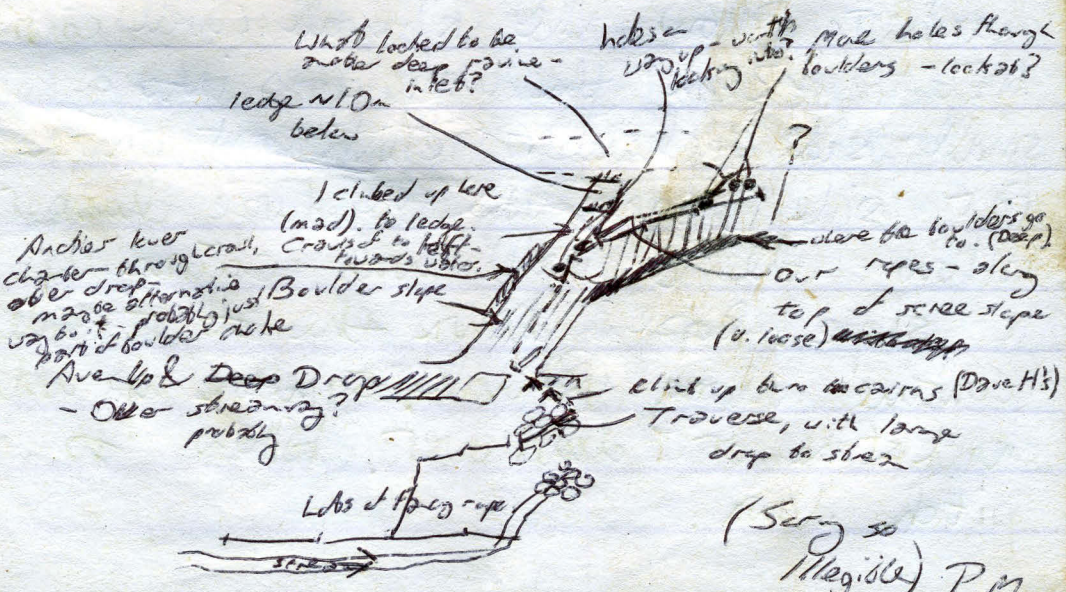 What looked to be
another deep ravine -
inlet?
holes -
way up - worth
looking into?
More holes through
boulders - look at?
ledge ~10m
below
?
I climbed up here
(mad). to ledge.
Crawled to
towards water.
Another lower
chamber - through crawl,
after drop -
maybe alternative
way to it - probably just
part of boulder choke
Boulder slope
where the boulders go
to. (Deep).
Our ropes - along
top of scree slope
(v. loose)
Aven Up & Deep Drop
- Over streamway?
probably
Climb up here to cairns (Dave H's)
Traverse, with large
drop to stream
Lots of rope
stream
(Sorry so
illegible) P.M